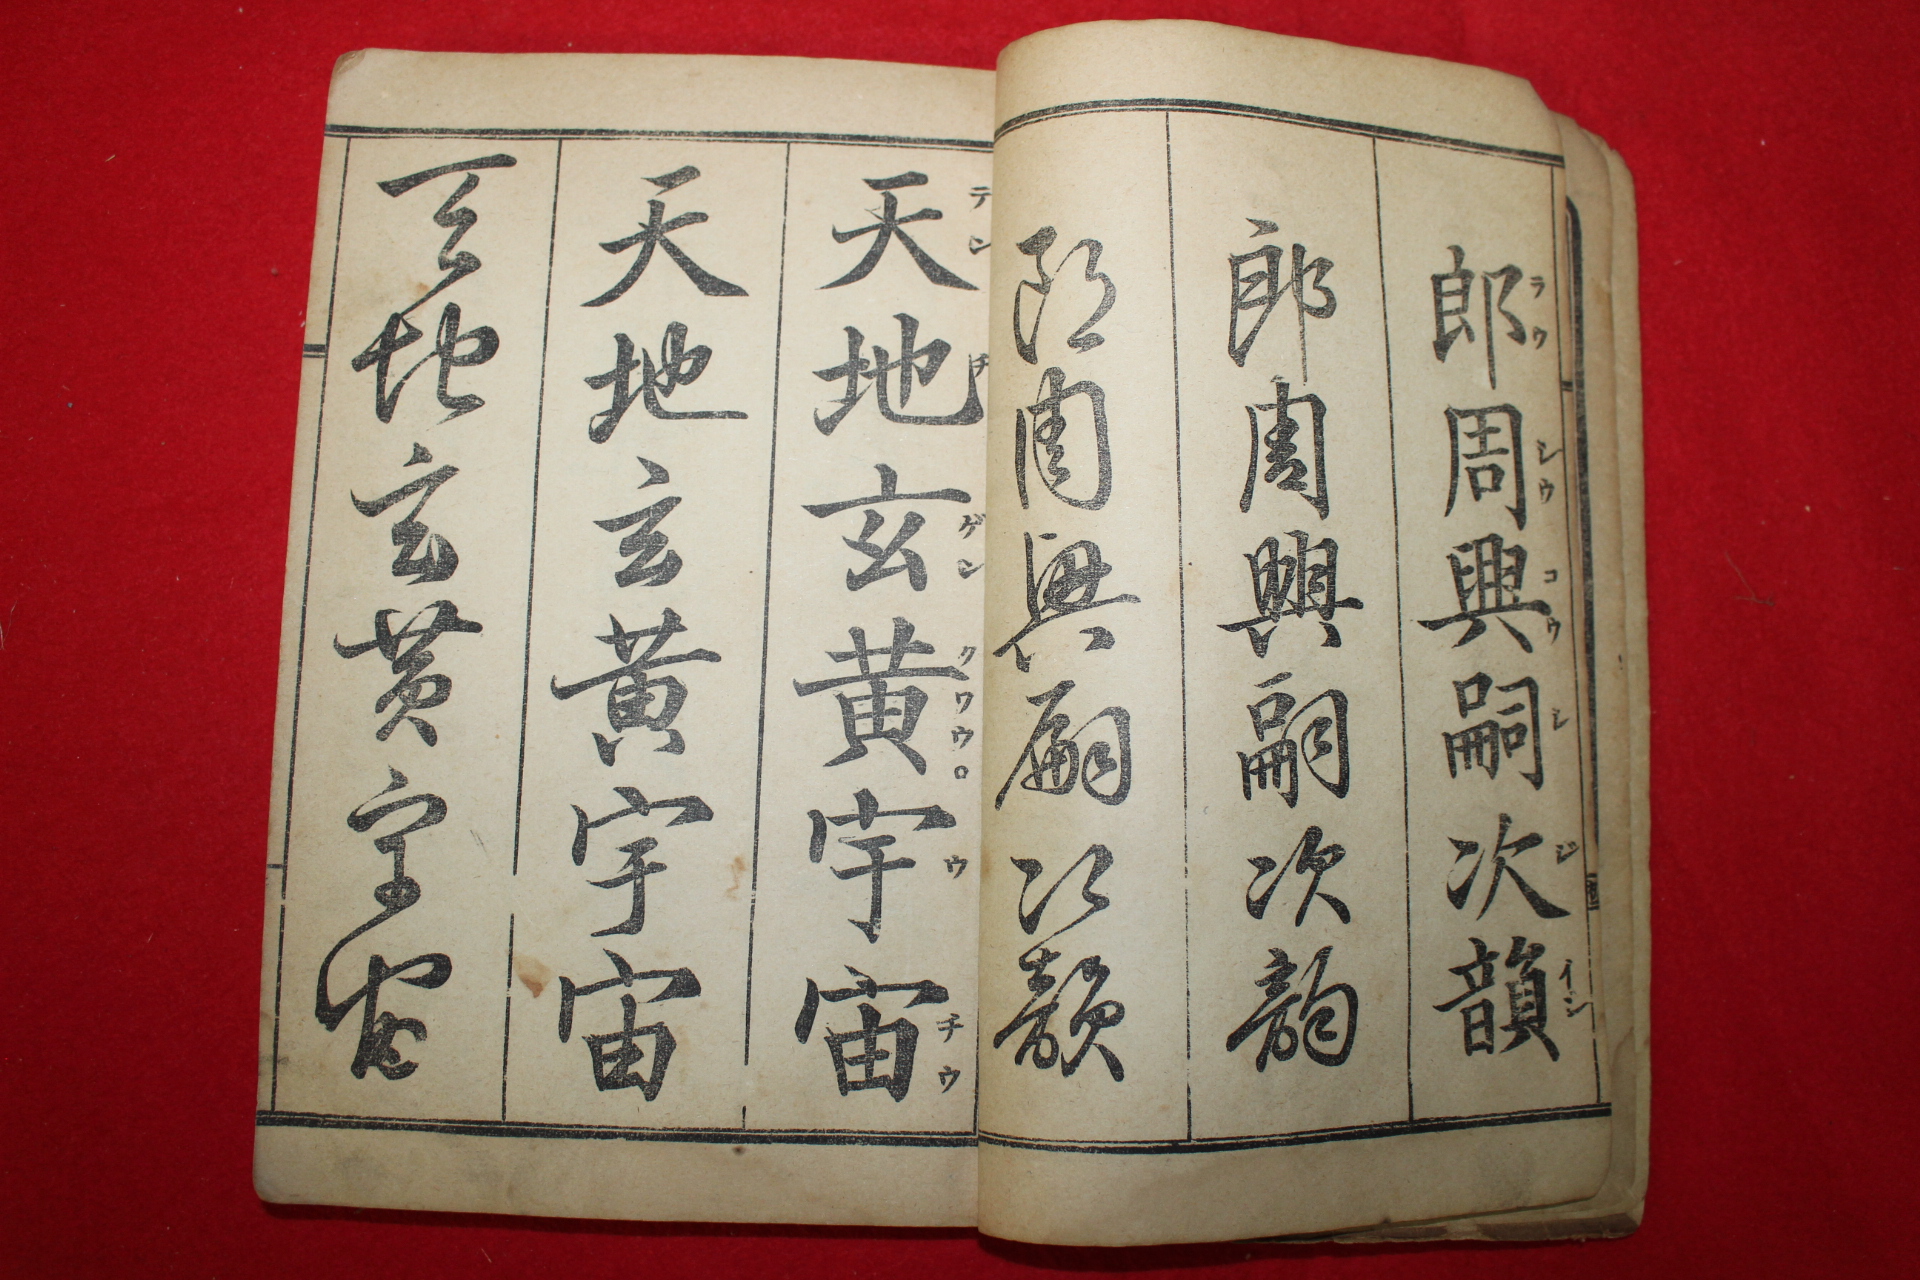 郎周興嗣次韻
ラウ シウ コウ シ ジ イン
郎周興嗣次韵
郎周興嗣次韻
天地玄黄宇宙
テン チ ゲン クワウ。 ウ チウ
天地玄黄宇宙
天地玄黄宇宙